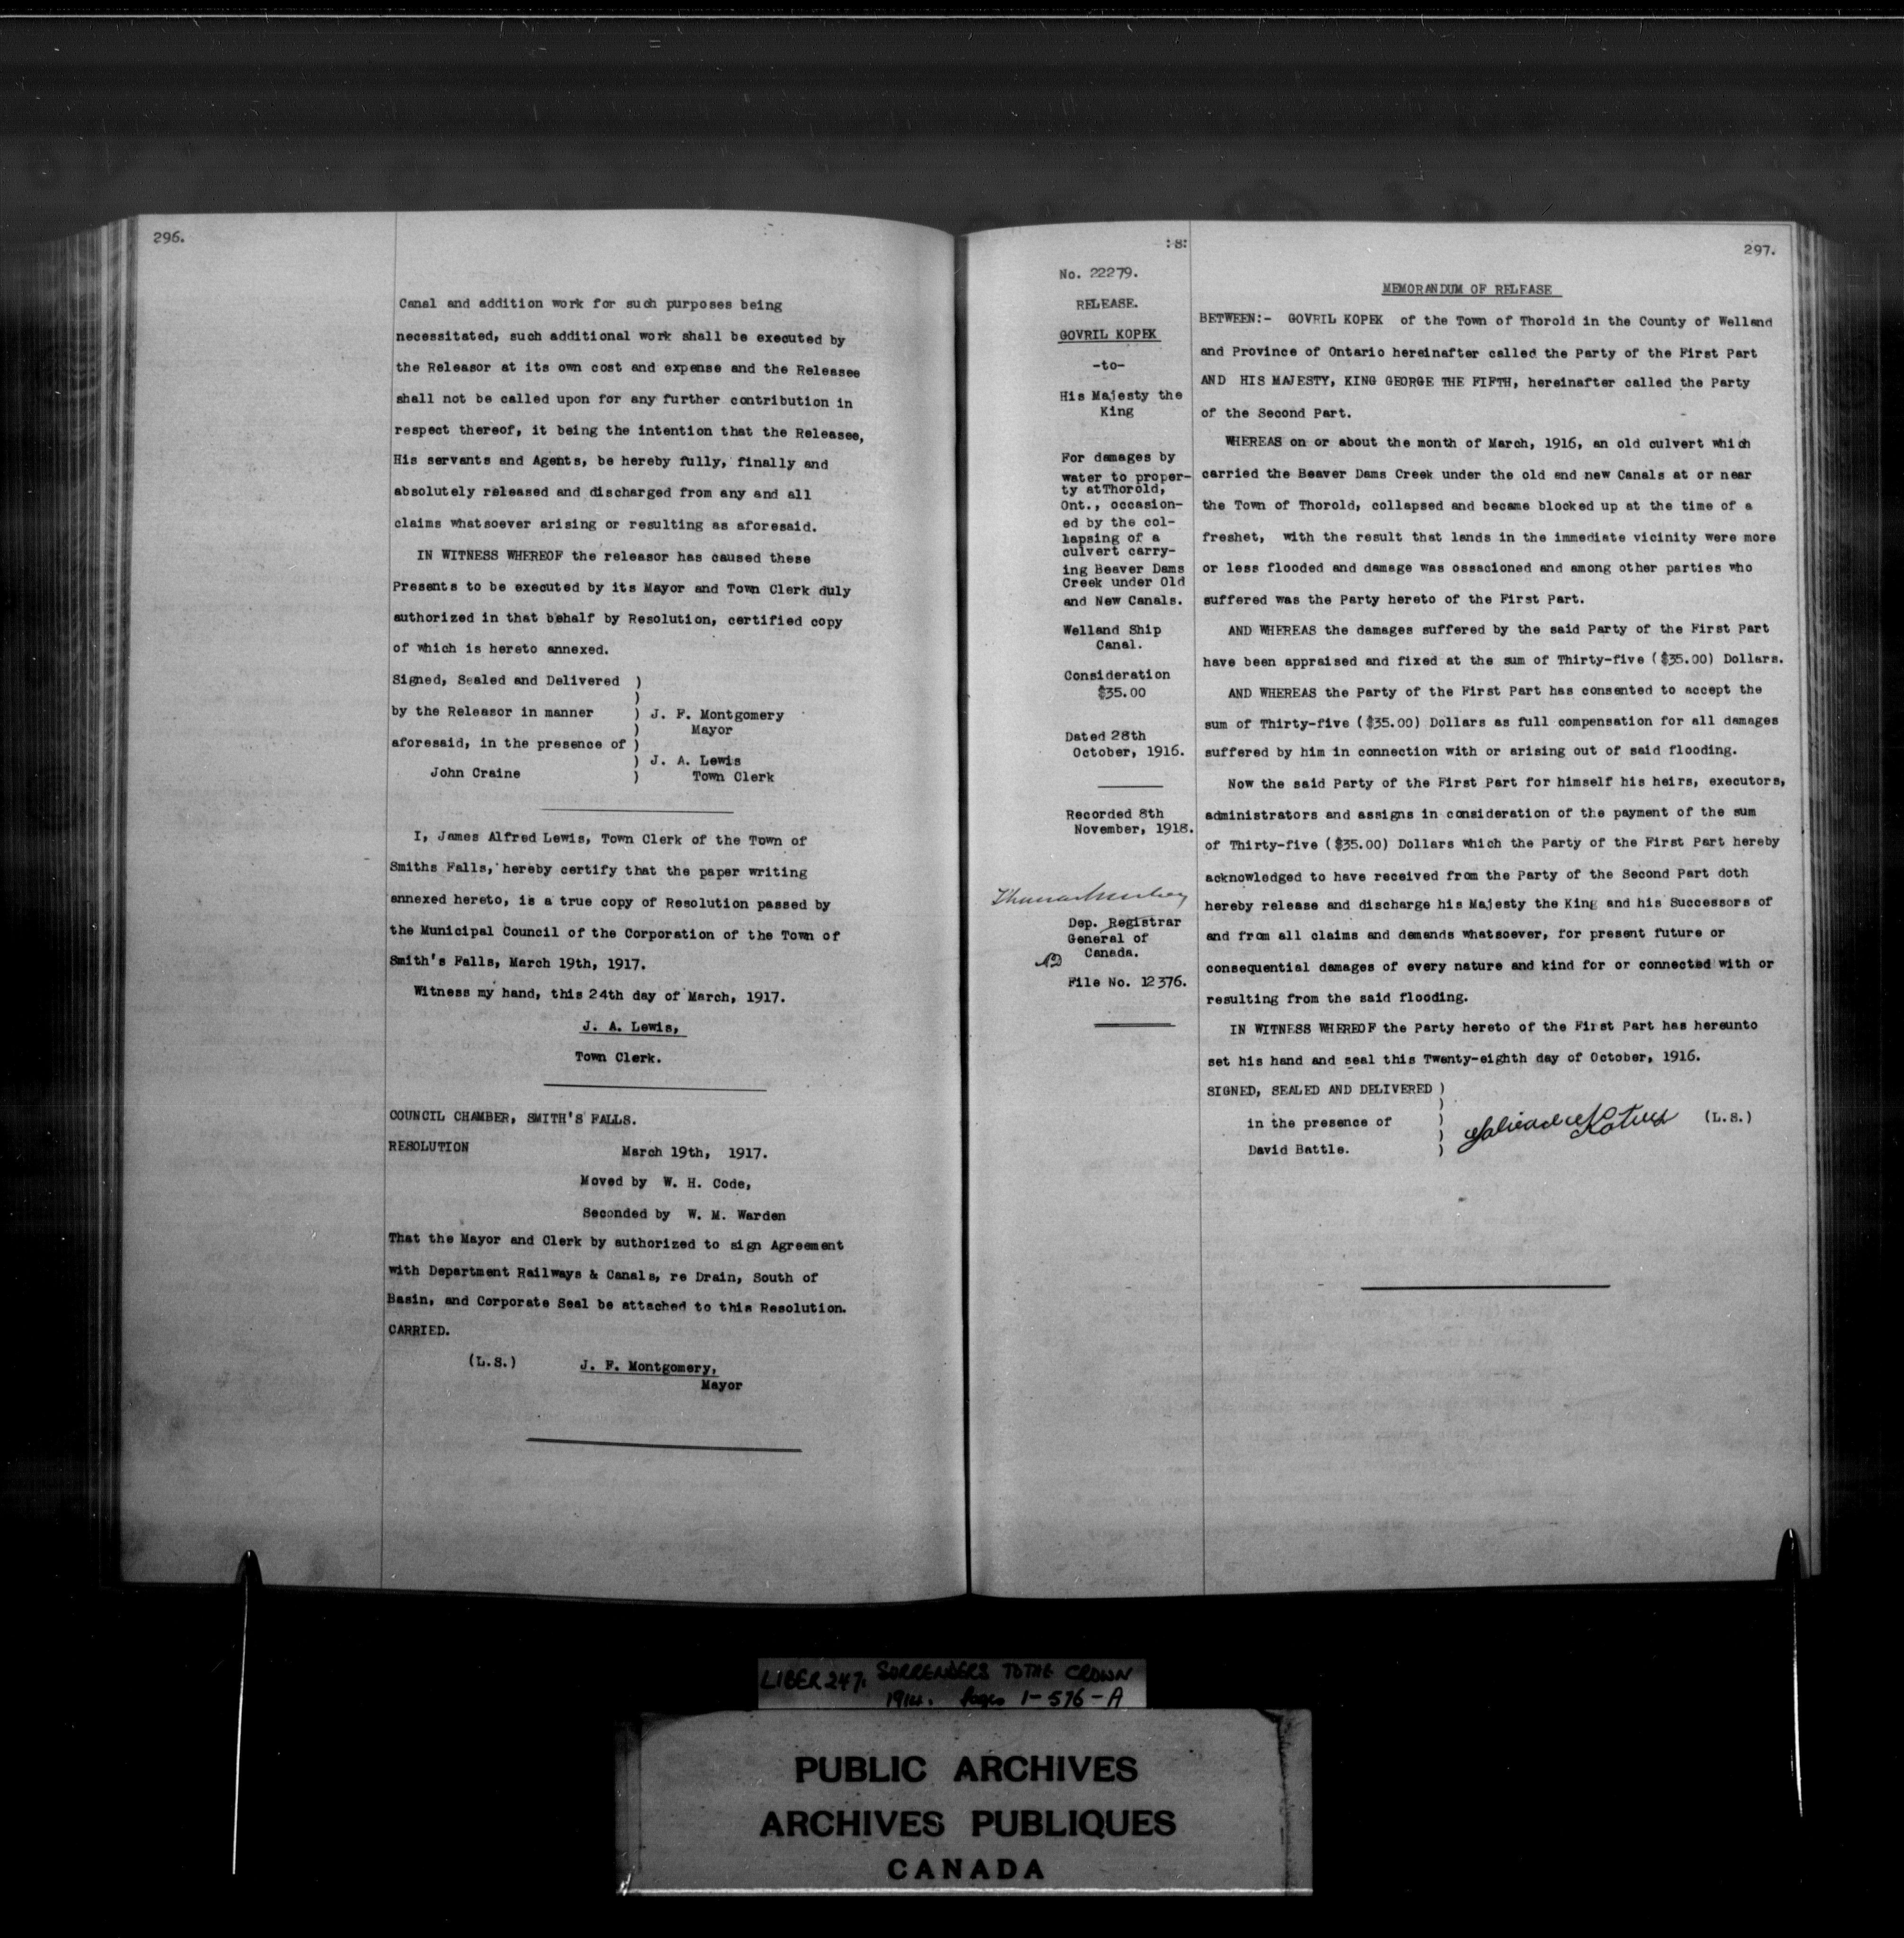 296.
Canal and addition work for such purposes being
necessitated, such additional work shall be executed by
the Releasor at its own cost and expense and the Releasee
shall not be called upon for any further contribution in
respect thereof, it being the intention that the Releasee,
His servants and Agents, be hereby fully, finally and
absolutely released and discharged from any and all
claims whatsoever arising or resulting as aforesaid.
IN WITNESS WHEREOF the releasor has caused these
Presents to be executed by its Mayor and Town Clerk duly
authorized in that behalf by Resolution, certified copy
of which is hereto annexed.
Signed, Sealed and Delivered )
)
by the Releasor in manner ) J. F. Montgomery
) Mayor
aforesaid, in the presence of )
) J. A. Lewis
John Craine ) Town Clerk
I, James Alfred Lewis, Town Clerk of the Town of
Smiths Falls, hereby certify that the paper writing
annexed hereto, is a true copy of Resolution passed by
the Municipal Council of the Corporation of the Town of
Smith's Falls, March 19th, 1917.
Witness my hand, this 24th day of March, 1917.
J. A. Lewis,
Town Clerk.
COUNCIL CHAMBER, SMITH'S FALLS.
RESOLUTION March 19th, 1917.
Moved by W. H. Code,
Seconded by W. M. Warden
That the Mayor and Clerk by authorized to sign Agreement
with Department Railways & Canals, re Drain, South of
Basin, and Corporate Seal be attached to this Resolution.
CARRIED.
(L.S.) J. F. Montgomery,
Mayor
:8:
No. 22279.
RELEASE.
GOVRIL KOPEK
-to-
His Majesty the
King
For damages by
water to proper-
ty atThorold,
Ont., occasion-
ed by the col-
lapsing of a
culvert carry-
ing Beaver Dams
Creek under Old
and New Canals.
Welland Ship
Canal.
Consideration
$35.00
Dated 28th
October, 1916.
Recorded 8th
November, 1918.
Dep. Registrar
General of
Canada.
File No. 12376.
297.
MEMORANDUM OF RELEASE
BETWEEN:- GOVRIL KOPEK of the Town of Thorold in the County of Welland
and Province of Ontario hereinafter called the Party of the First Part
AND HIS MAJESTY, KING GEORGE THE FIFTH, hereinafter called the Party
of the Second Part.
WHEREAS on or about the month of March, 1916, an old culvert which
carried the Beaver Dams Creek under the old and new Canals at or near
the Town of Thorold, collapsed and became blocked up at the time of a
freshet, with the result that lands in the immediate vicinity were more
or less flooded and damage was ossacioned and among other parties who
suffered was the Party hereto of the First Part.
AND WHEREAS the damages suffered by the said Party of the First Part
have been appraised and fixed at the sum of Thirty-five ($35.00) Dollars.
AND WHEREAS the Party of the First Part has consented to accept the
sum of Thirty-five ($35.00) Dollars as full compensation for all damages
suffered by him in connection with or arising out of said flooding.
Now the said Party of the First Part for himself his heirs, executors,
administrators and assigns in consideration of the payment of the sum
of Thirty-five ($35.00) Dollars which the Party of the First Part hereby
acknowledged to have received from the Party of the Second Part doth
hereby release and discharge his Majesty the King and his Successors of
and from all claims and demands whatsoever, for present future or
consequential damages of every nature and kind for or connected with or
resulting from the said flooding.
IN WITNESS WHEREOF the Party hereto of the First Part has hereunto
set his hand and seal this Twenty-eighth day of October, 1916.
SIGNED, SEALED AND DELIVERED )
)
in the presence of ) (L.S.)
)
David Battle. )
LIBER 247. SURRENDERS TO THE CROWN
1914. Pages 1-576-A
PUBLIC ARCHIVES
ARCHIVES PUBLIQUES
CANADA